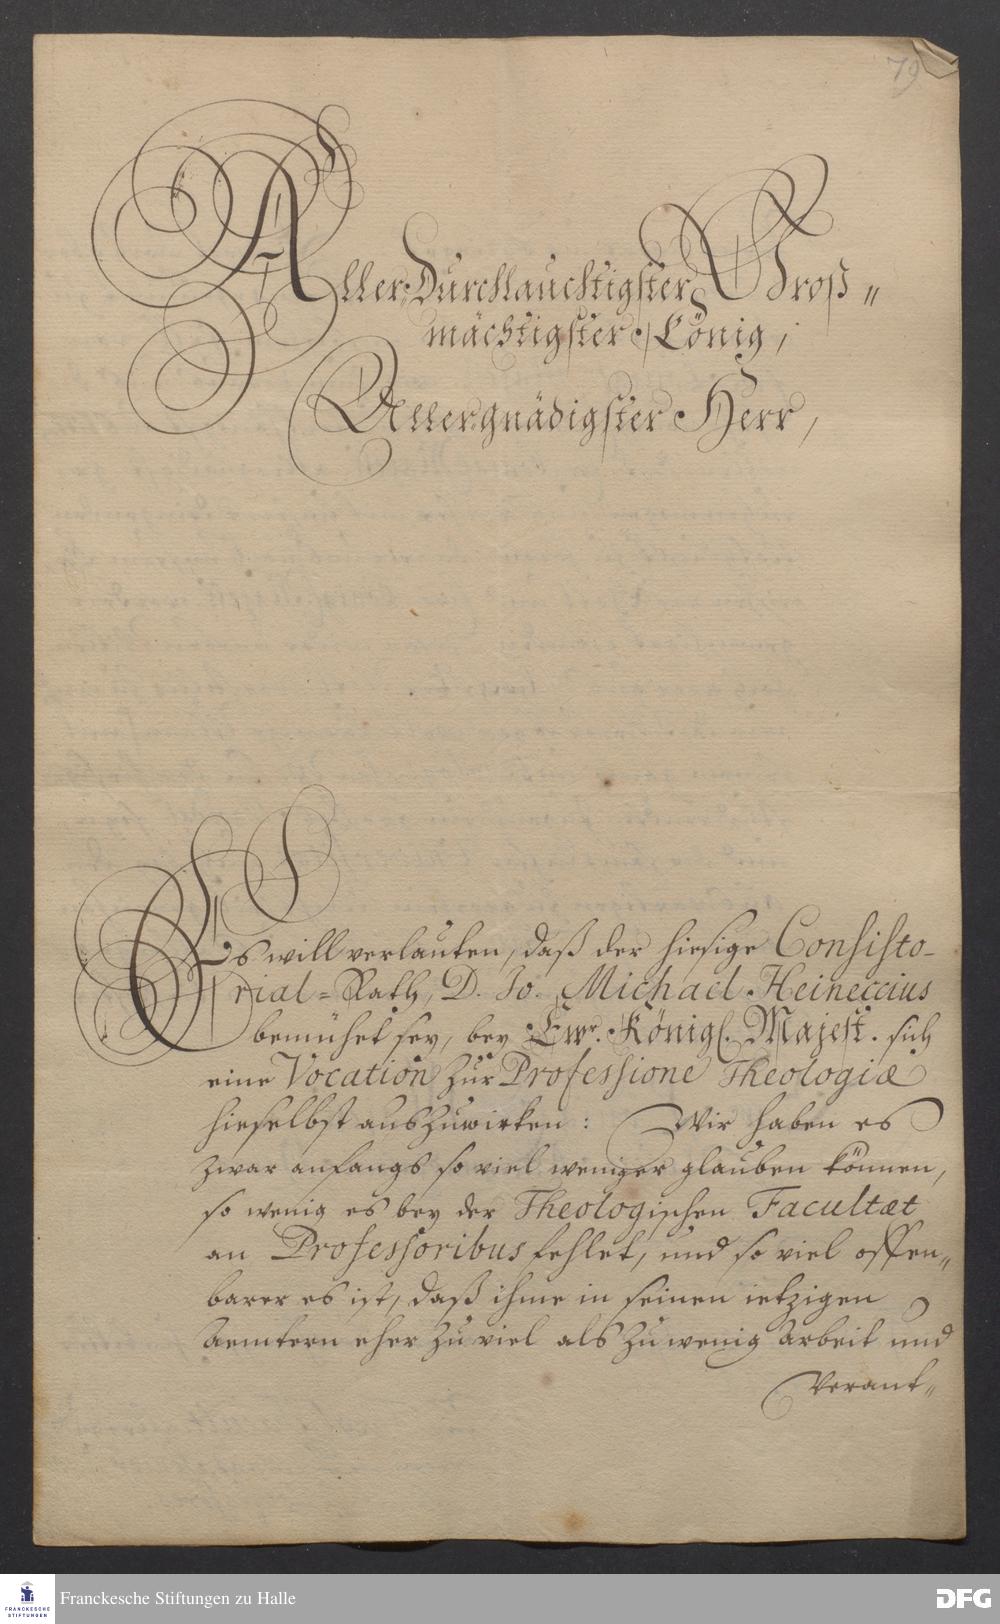 79
Aller-Durchlauchtigster Groß=
mächtigster König,
Allergnädigster Herr,
Es will verlauten, daß der hiesige Consisto-
rial=Rath, D. Jo. Michael Heineccius
bemühet sey, bey Ewr. Königl. Majest. sich
eine Vocation zur Professione Theologiæ
hieselbst auszuwirken: Wir haben es
zwar anfangs so viel weniger glauben können,
so wenig es bey der Theologischen Facultæt
an Professoribus fehlet, und so viel offen=
barer es ist, daß ihme in seinen ietzigen
aemtern eher zu viel als zu wenig arbeit und
Verant=
FRANCKESCHE STIFTUNGEN
Franckesche Stiftungen zu Halle
DFG